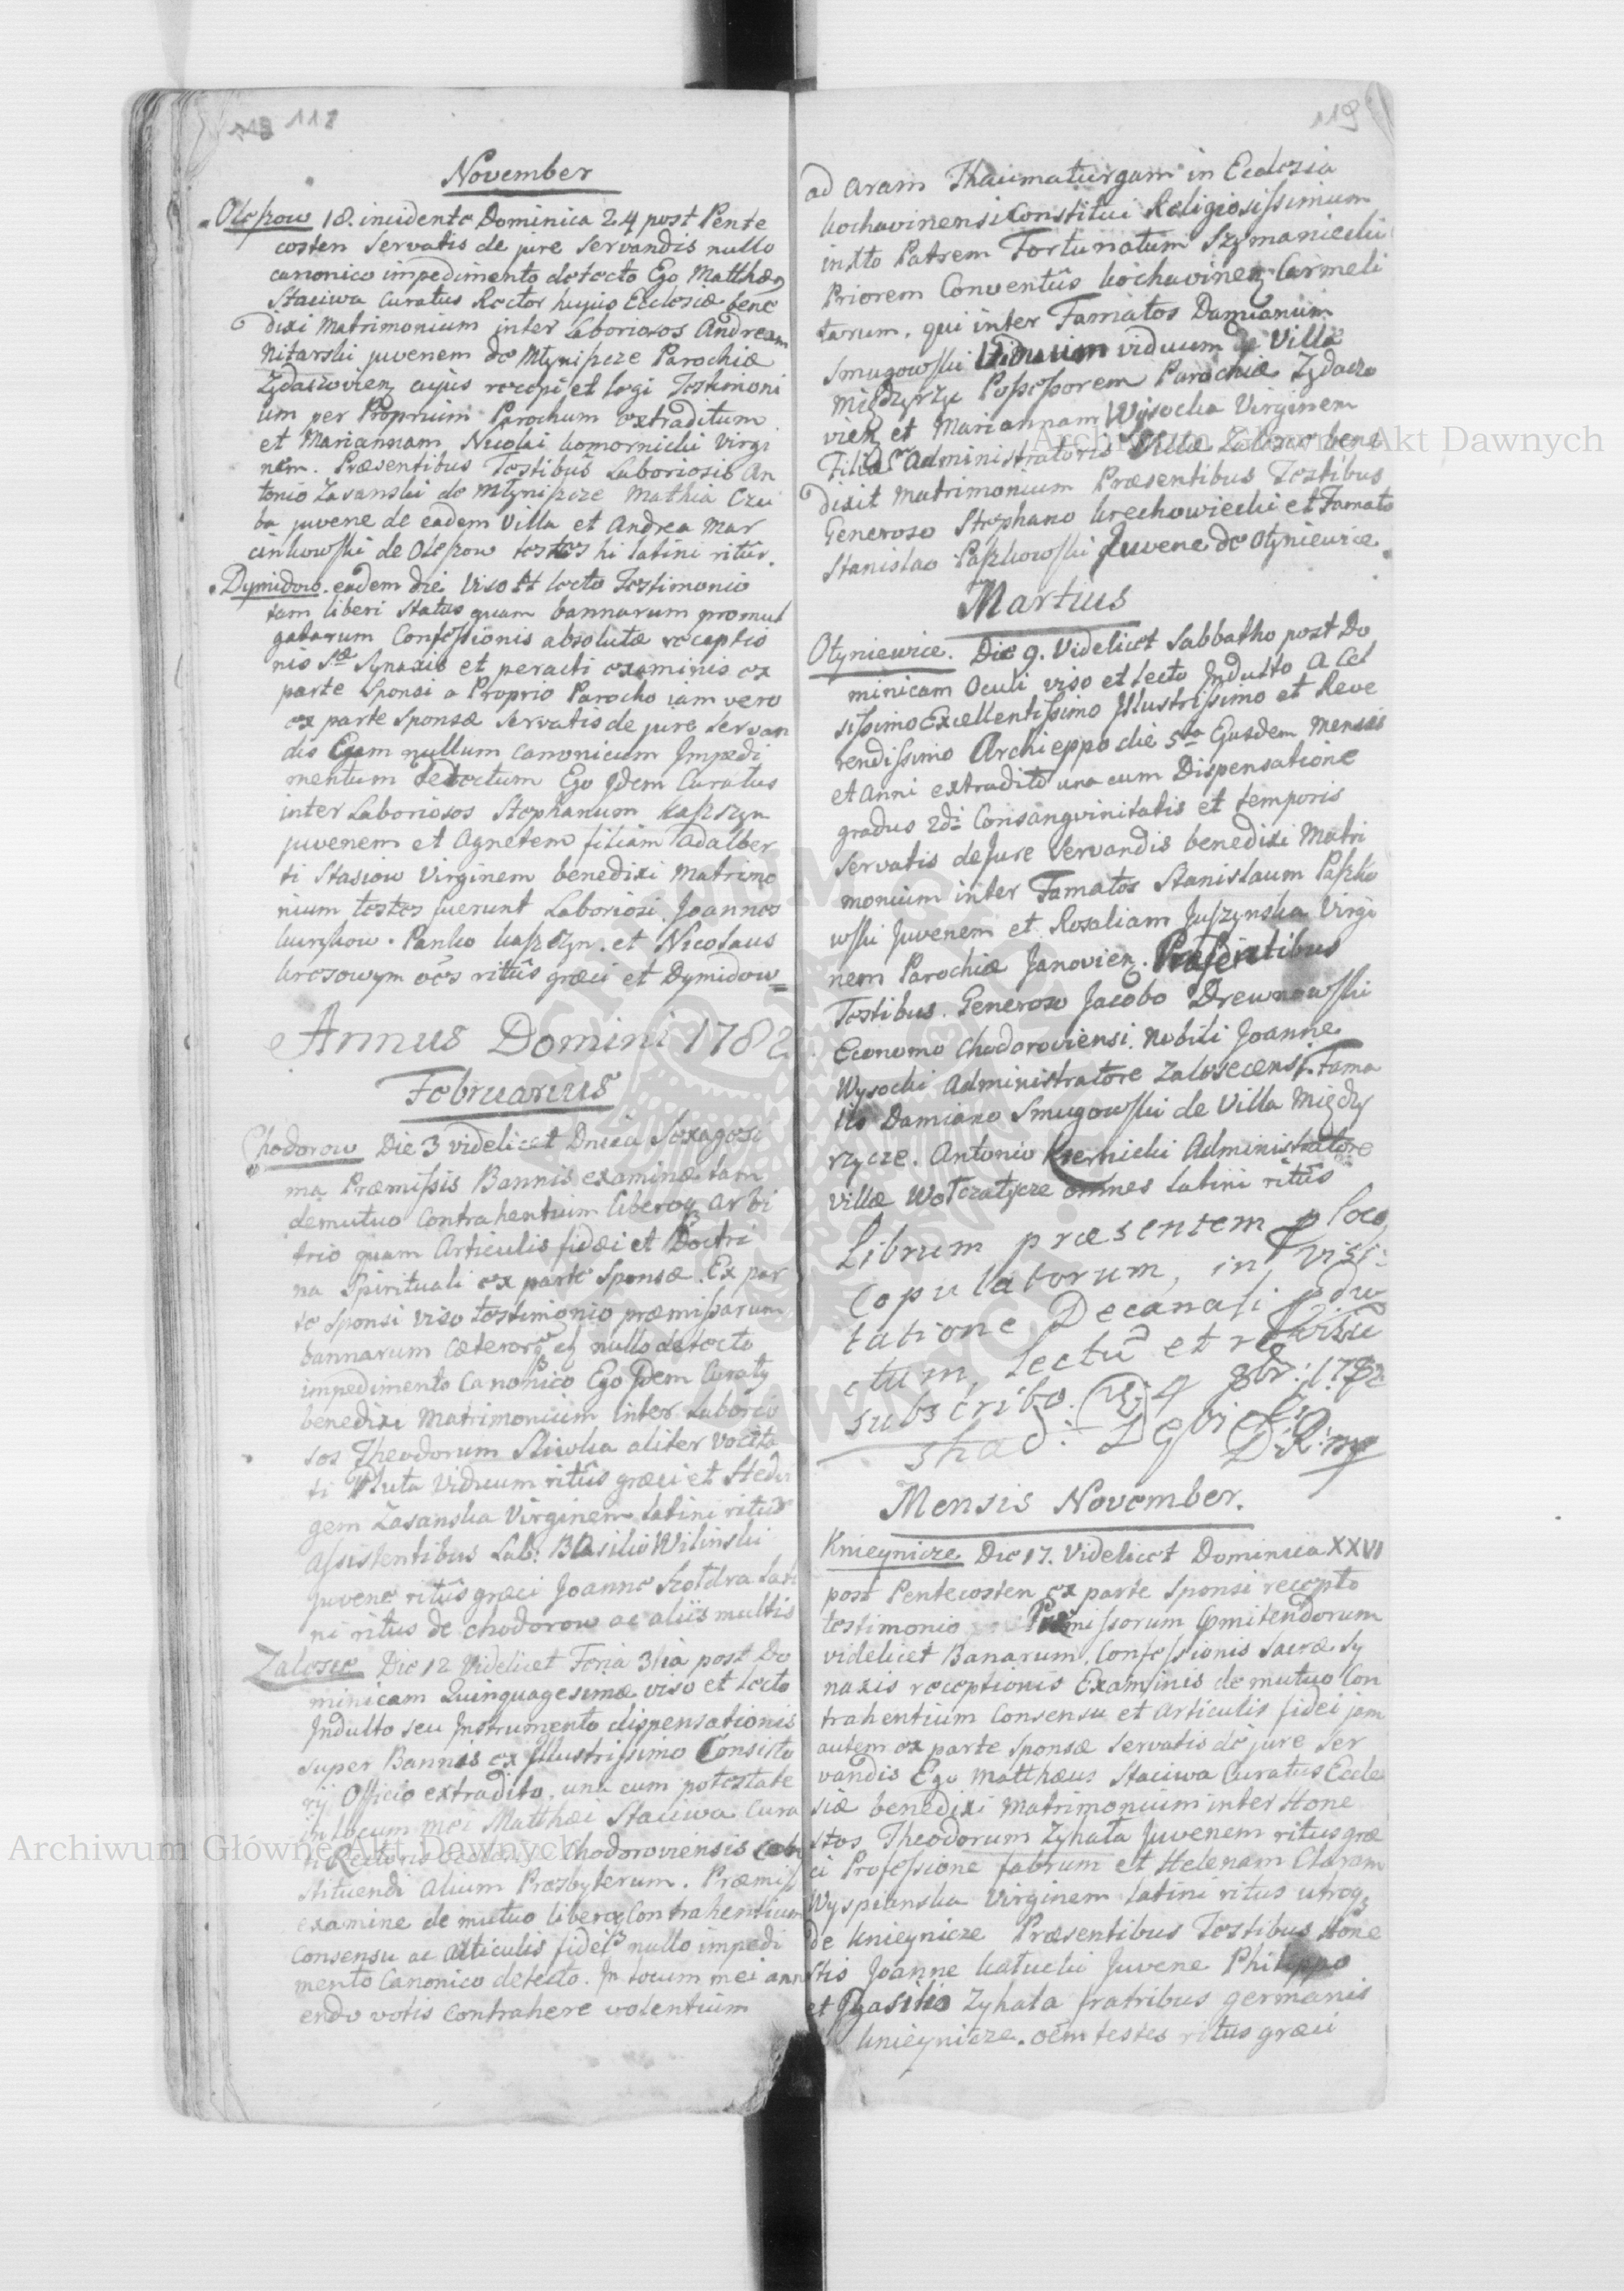 118 118
November
Oleszow 18. incidente Dominica 24 post Pente
costen servatis de jure servandis nullo
canonico impedimento detecto Ego Matthæg
Staciwa Curatus Rector hujus Ecclesiæ bene
dixi Matrimonium inter Laboriosos Andream
Nitarski juvenem de Młyniszcze Parochiæ
Zydacovien cujus recepi et legi Testimoni
um per Proprium Parochum extraditum
et Mariannam Nicolai Komornicki Virgi
nem. Præsentibus Testibus Laboriosis An
tonio Zasanski de Młyniszcze Mathia Czu
ba juvene de eadem Villa et Andrea Mar
cinkowski de Oleszow testes hi latini ritûs.
Dymidow. eadem die Viso et lecto Testimonio
tam liberi status quam bannarum promul
gatarum Confessionis absolutæ receptio
nis Sæ Synaxis et peracti examinis ex
parte Sponsi a Proprio Parocho iam vero
ex parte Sponsæ servatis de jure servan
dis nullum canonicum Impedi
mentum detectum Ego Idem Curatus
inter Laboriosos Stephanum Kaszczyn
juvenem et Agnetem filiam Adalber
ti Stasiow Virginem benedixi Matrimo
nium testes fuerunt Laboriosi Joannes
Kurykow. Panko Kaszczyn. et Nicolaus
Kresowym oēs ritûs græci et Dymidow
Annus Domini 1782
Februarius
Chodorow Die 3 videlicet Dnica Sexagesi
ma Præmissis Bannis examinæ tam
de mutuo Contrahentium libero arbi
trio quam Articulis fidei et Doctri
na Spirituali ex parte Sponsæ. Ex par
te Sponsi viso testimonio præmissarum
bannarum cæterorq eq nullo detecto
impedimento Canonico Ego Idem Curatg
benedixi Matrimonium inter Laborio
sos Theodorum Sliwka aliter Vocita
ti Pluta Viduum ritûs græci et Hedvi
gem Zasanska Virginem Latini ritûs
Assistentibus Lab: Basilio Wilinski
Juvene ritûs græci Joanne Szołdra Lati
ni ritus de Chodorow ac aliis multis
Zalosce Die 12 Videlicet Feria 3tia post Do
minicam Quinquagesimæ viso et lecto
Indulto seu Instrumento dispensationis
super Bannis ex Illustrissimo Consisto
rij Officio extradito, una cum potestate
in locum mei Matthæi Staciwa Cura
ti Rectoris Ecclesiæ Chodoroviensis con
stituendi alium Presbyterum. Præmiss
examine de mutuo libero Contrahentium
Consensu ac articulis fidei nullo impedi
mento Canonico detecto. In locum mei ann
endo votis contrahere volentium
119
ad aram Thaumaturgam in Ecclesia
Kochavinensi Constitui Religiosissimum
in Xto Patrem Fortunatum Szymaniecki
Priorem Conventûs Kochavinen Carmeli
tarum, qui inter Famatos Damianum
Smugowski viduum de Villa
Międzyrzyc Possessorem Parochiæ Zydaczo
vien et Mariannam Wysocka Virginem
Filia Administratoris Villæ Zalosce bene
dixit Matrimonium Præsentibus Testibus
Generoso Stephano Krechowiecki et Famato
Stanislao Paszkowski Juvene de Otyniewice.
Martius
Otyniewice. Die 9. Videlicet Sabbatho post Do
minicam Oculi viso et lecto Indulto a Cel
sissimo Excellentissimo Illustrissimo et Reve
rendissimo Archieppo die 5ta Ejusdem Mensis
et Anni extradito una cum Dispensatione
gradus 2di Consangvinitatis et temporis
servatis de Jure servandis benedixi Matri
monium inter Famatos Stanislaum Paszko
wski Juvenem et Rosaliam Juszynska Virgi
nem Parochiæ Janovien. Præsentibus
Testibus. Generoso Jacobo Drewnowski
Economo Chodoroviensi. Nobili Joanne
Wysocki Administratore Zaloscensi. Fama
tis Damiano Smugowski de Villa Między
rzycze. Antonio Kiernicki Administratore
Villæ Wołczatycze omnes Latini ritûs
Librum præsentem p loco
Copulatorum, in Visi:
tatione Decanali pdu
ctum, lectū et revisū
subscribo. 4 8br: 1782
Mensis November.
Knieynicze Die 17. Videlicet Dominica XXVI
post Pentecosten ex parte Sponsi recepto
testimonio Præmissorum Omitendorum
videlicet Banarum. Confessionis Sacræ Sy
naxis receptionis Examinis de mutuo Con
trahentium Consensu et articulis fidei jam
autem ex parte Sponsæ servatis de jure ser
vandis Ego Matthæus Staciwa Curatus Eccle
siæ benedixi Matrimonium inter Hone
stos Theodorum Zyhała Juvenem ritus græ
ci Professione fabrum et Helenam Claram
Wyspianska Virginem Latini ritus utrog
de Knieynicze Præsentibus Testibus Hone
stis Joanne Kałucki Juvene Philippo
et Basilio Zyhała fratribus germanis
Knieynicze. oēm testes ritus græci
Archiwum Główne Akt Dawnych
Archiwum Główne Akt Dawnych